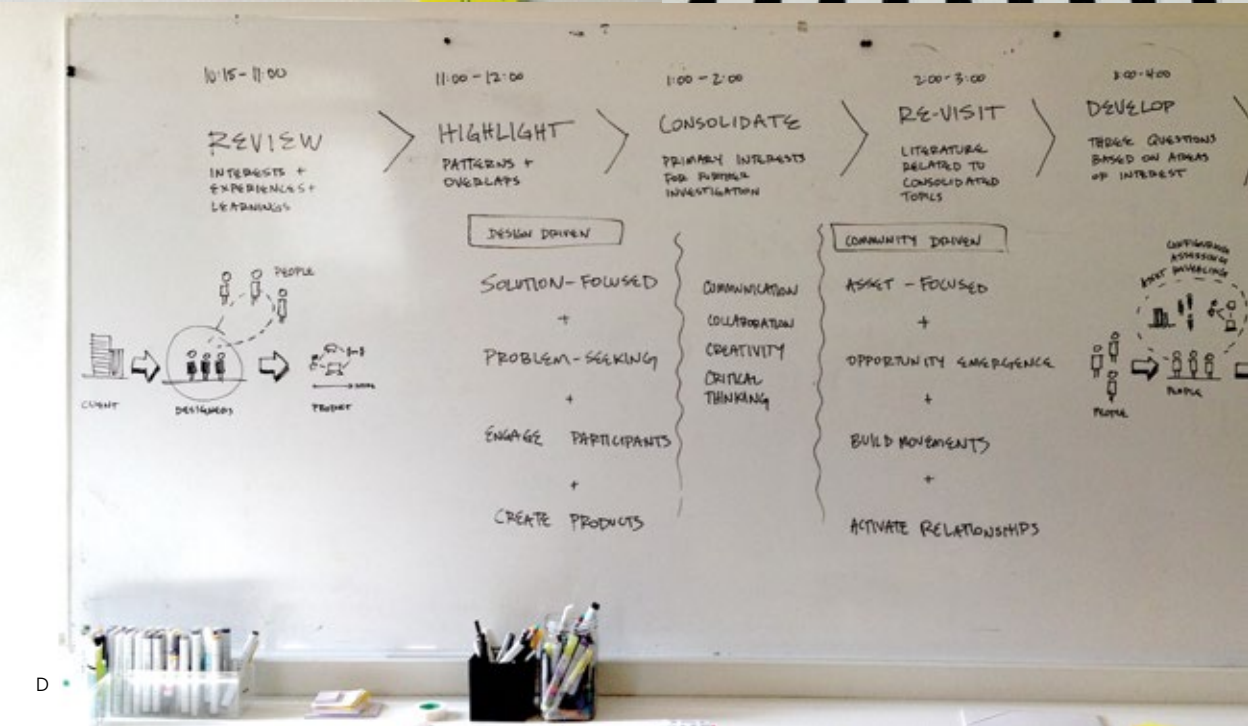 10:15-11:00
REVIEW
INTERESTS +
EXPERIENCES +
LEARNINGS
11:00-12:00
HIGHLIGHT
PATTERNS +
OVERLAPS
1:00-2:00
CONSOLIDATE
PRIMARY INTERESTS
FOR FURTHER
INVESTIGATION
2:00-3:00
RE-VISIT
LITERATURE
RELATED TO
CONSOLIDATED
TOPICS
3:00-4:00
DEVELOP
THREE QUESTIONS
BASED ON AREAS
OF INTEREST
PEOPLE
CLIENT
DESIGNERS
PRODUCT
DESIGN DRIVEN
SOLUTION-FOCUSED
+
PROBLEM-SEEKING
+
ENGAGE PARTICIPANTS
+
CREATE PRODUCTS
COMMUNICATION
COLLABORATION
CREATIVITY
CRITICAL
THINKING
COMMUNITY DRIVEN
ASSET-FOCUSED
+
OPPORTUNITY EMERGENCE
+
BUILD MOVEMENTS
+
ACTIVATE RELATIONSHIPS
CONFIGURING
ASSESSING
ASSET REVEALING
PEOPLE
PEOPLE
D